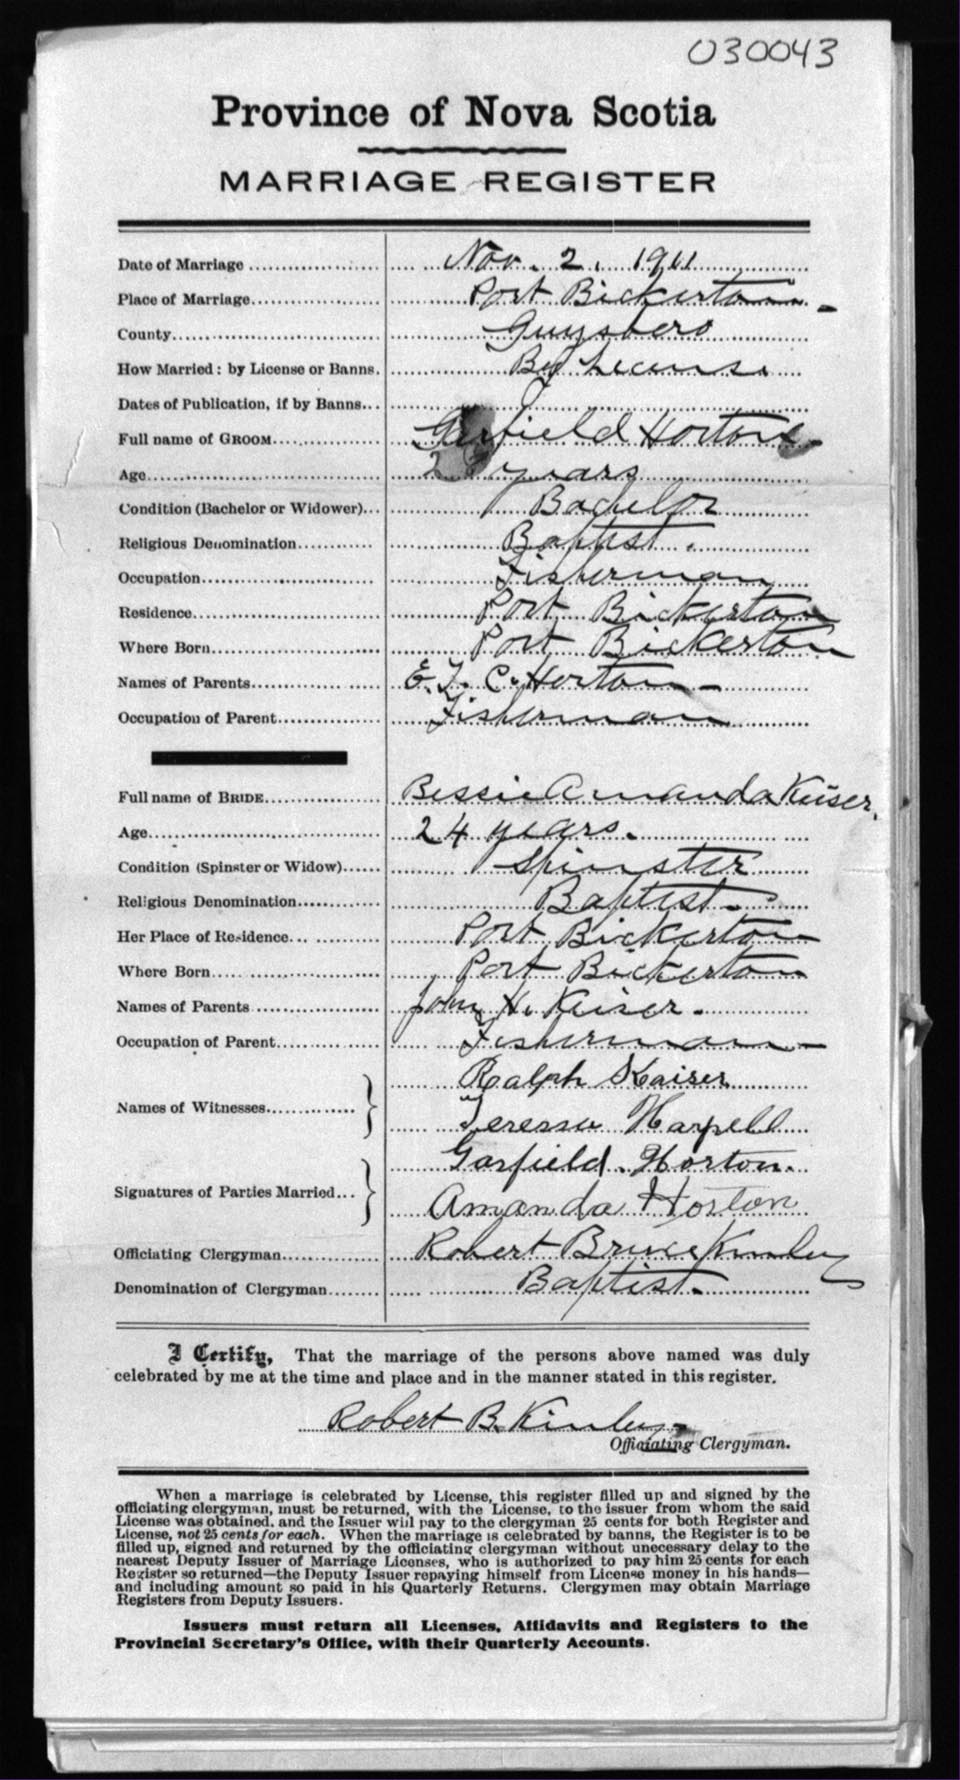 030043
Province of Nova Scotia
MARRIAGE REGISTER
Date of Marriage Nov. 2. 1911
Place of Marriage Port Bickerton
County Guysboro
How Married: by License or Banns. By License
Dates of Publication, if by Banns
Full name of GROOM Garfield Horton
Age years
Condition (Bachelor or Widower) Bachelor
Religious Denomination Baptist.
Occupation Fisherman
Residence Port Bickerton
Where Born Port Bickerton
Names of Parents Horton
Occupation of Parent Fisherman
Full name of BRIDE Bessie Amanda Keiser.
Age 24 years.
Condition (Spinster or Widow) Spinster
Religious Denomination Baptist.
Her Place of Residence Port Bickerton
Where Born Port Bickerton
Names of Parents John H. Keiser.
Occupation of Parent Fisherman
Names of Witnesses Ralph Kaiser
Teressa Harpell
Signatures of Parties Married Garfield. Horton.
Amanda Horton
Officiating Clergyman Robert Bruce Kinley
Denomination of Clergyman Baptist.
I Certify, That the marriage of the persons above named was duly
celebrated by me at the time and place and in the manner stated in this register.
Robert B. Kinley
Officiating Clergyman.
When a marriage is celebrated by License, this register filled up and signed by the
officiating clergyman, must be returned, with the License, to the issuer from whom the said
License was obtained, and the Issuer will pay to the clergyman 25 cents for both Register and
License, not 25 cents for each. When the marriage is celebrated by banns, the Register is to be
filled up, signed and returned by the officiating clergyman without unecessary delay to the
nearest Deputy Issuer of Marriage Licenses, who is authorized to pay him 25 cents for each
Register so returned—the Deputy Issuer repaying himself from License money in his hands—
and including amount so paid in his Quarterly Returns. Clergymen may obtain Marriage
Registers from Deputy Issuers.
Issuers must return all Licenses, Affidavits and Registers to the
Provincial Secretary's Office, with their Quarterly Accounts.